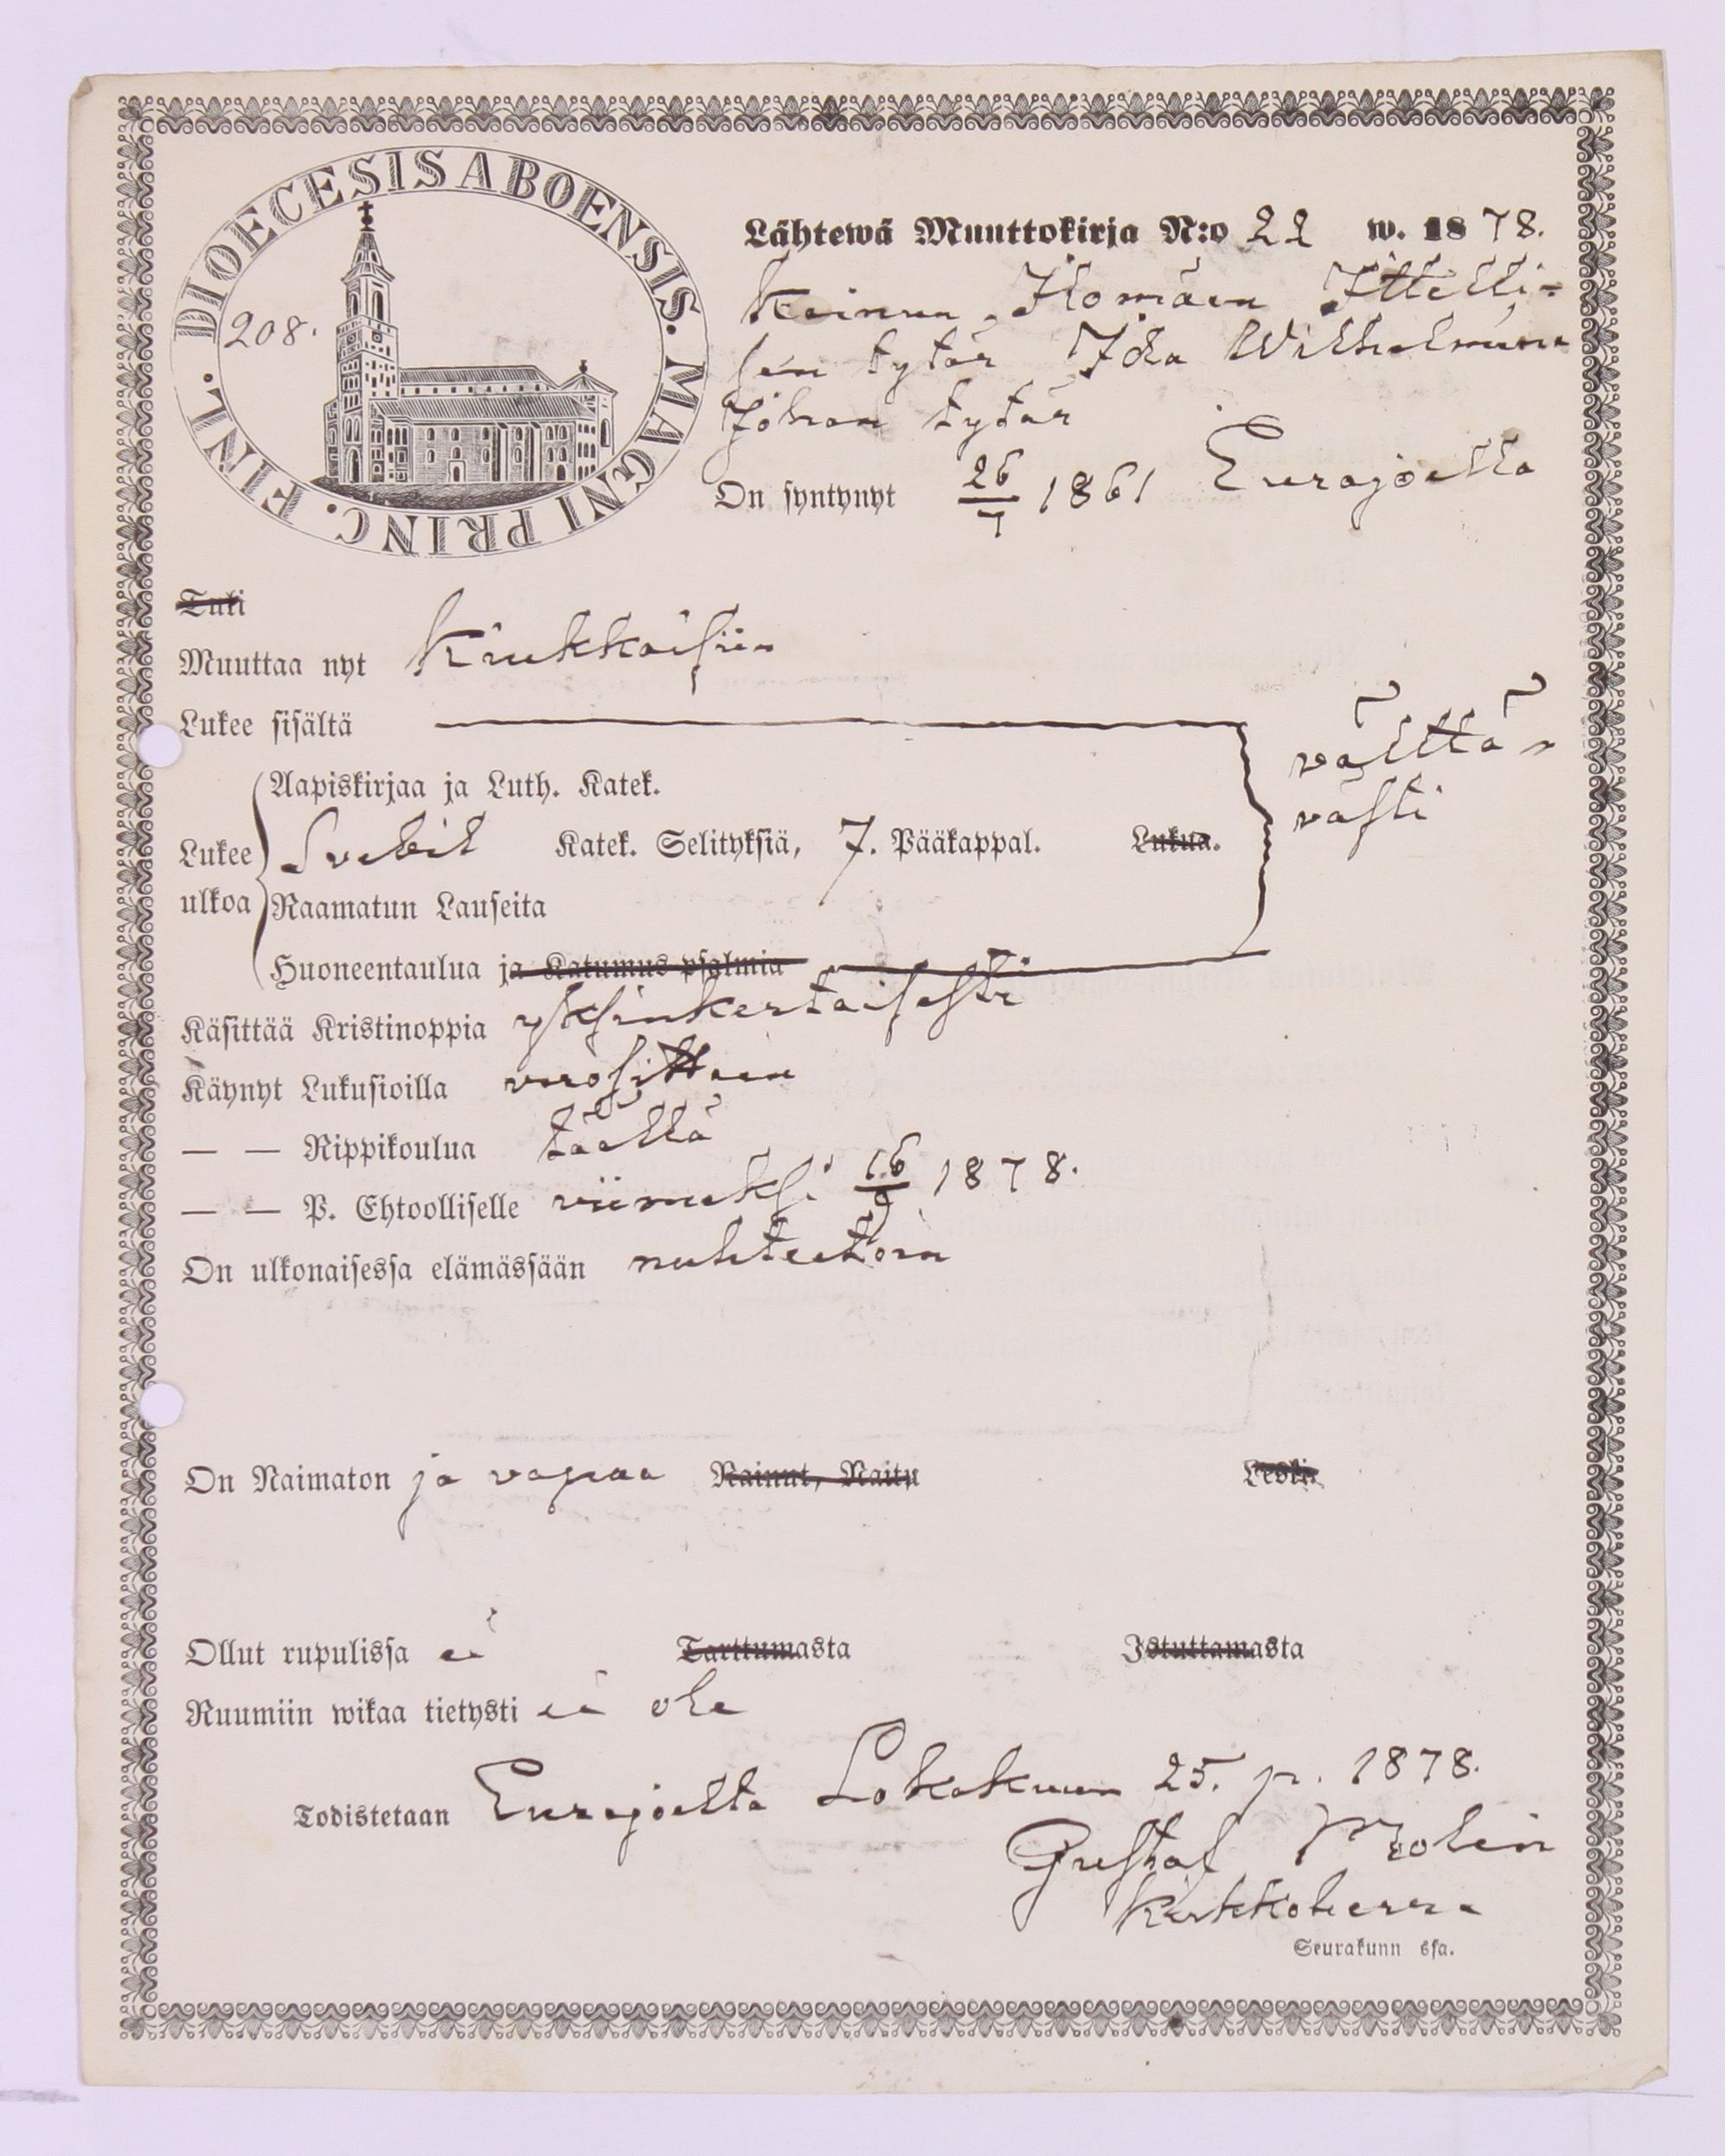 DIOECESIS ABOENSIS. MAGNI PRINC. FINL.
208.
Lähtewä Muuttokirja N:o 22 w. 1878.
Keinun Ilomäen Ittelli-
sen tytär Ida Wilhelmina
Johan tytär
On syntynyt 26/7 1861 Eurajoella
Tuli
Muuttaa nyt Kiukkaisiin
Lukee sisältä
välttä-
västi
Aapiskirjaa ja Luth. Katek.
Lukee ulkoa Svebil Katek. Selityksiä, 7. Pääkappal. Lukua.
Raamatun Lauseita
Huoneentaulua ja Katumus psalmia
Käsittää Kristinoppia yksinkertaisesti
Käynyt Lukusioilla vuosittain
— — Rippikoulua täällä
— — P. Ehtoolliselle viimeksi 16/9 1878.
On ulkonaisessa elämässään nuhteetoin
On Naimaton ja vapaa Nainut, Naitu Leski.
Ollut rupulissa ei Tarttumasta Istuttamasta
Ruumiin wikaa tietysti ei ole
Todistetaan Eurajoella Lokakuun 25. p. 1878.
Gustaf Molin
Kirkkoherra
Seurakunn ssa.